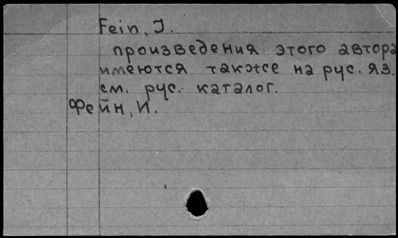 Fein, I.
произведения этого автора
имеются также на рус. яз.
см. рус. каталог.
Фейн, И.